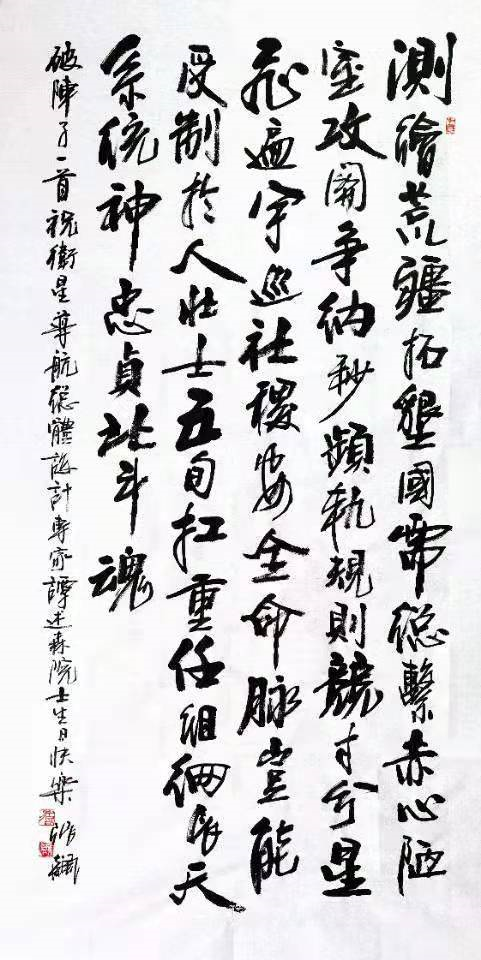 測繪荒疆拓墾國需總繫赤心陋
室攻關爭納秒頻軌規則競寸分星
飛遍宇巡社稷安全命脈豈能
受制於人壯士五旬扛重任組網長天
系統神忠貞北斗魂
破陣子一首祝衛星導航總體設計專家譚述森院士生日快樂